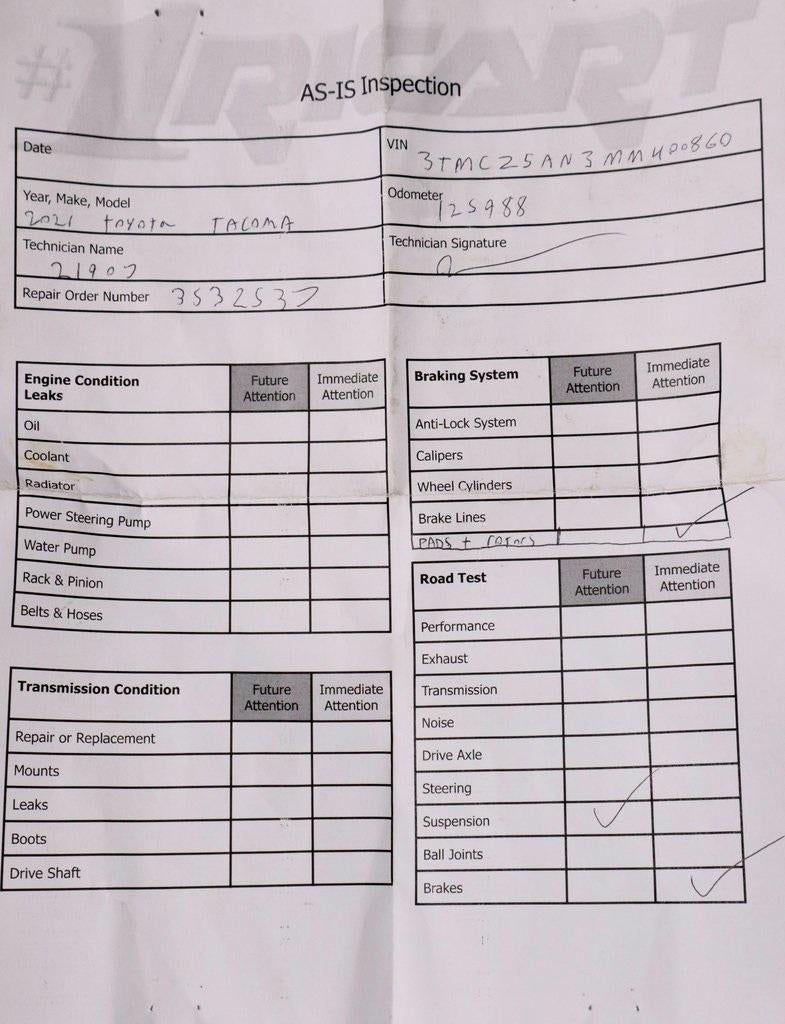 #1 RICART
AS-IS Inspection
Date
VIN 3TMCZ5AN3MM400860
Year, Make, Model
2021 toyota TACOMA
Odometer 125988
Technician Name
21907
Technician Signature
Repair Order Number 3532537
Engine Condition Leaks Future Attention Immediate Attention
Oil
Coolant
Radiator
Power Steering Pump
Water Pump
Rack & Pinion
Belts & Hoses
Transmission Condition Future Attention Immediate Attention
Repair or Replacement
Mounts
Leaks
Boots
Drive Shaft
Braking System Future Attention Immediate Attention
Anti-Lock System
Calipers
Wheel Cylinders
Brake Lines
PADS + rotors ✓
Road Test Future Attention Immediate Attention
Performance
Exhaust
Transmission
Noise
Drive Axle
Steering
Suspension ✓
Ball Joints
Brakes ✓